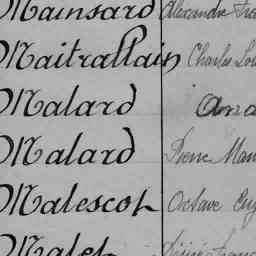 Mainsard Alexandre
Maitrallain Charles
Malard
Malard Pierre
Malescot Octave
Malet